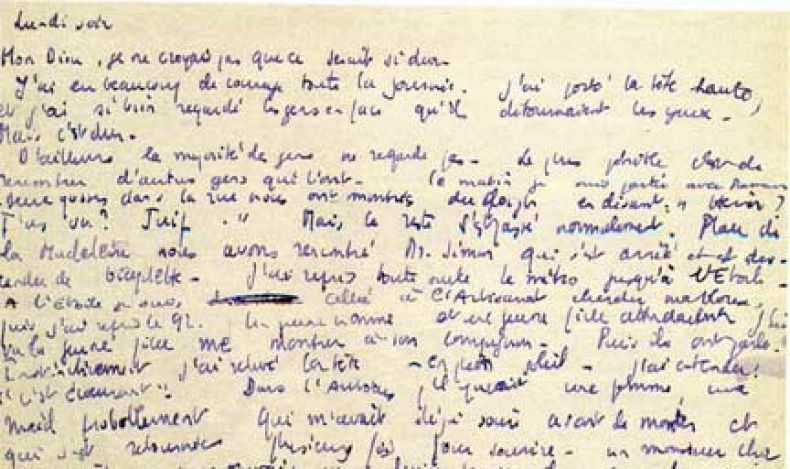 Lundi soir
Mon Dieu, je ne croyais pas que ce serait si dur.
J'ai eu beaucoup de courage toute la journée. J'ai porté la tête haute,
et j'ai si bien regardé les gens en face qu'ils détournaient les yeux.
Mais c'est dur.
D'ailleurs la majorité des gens ne regarde pas. Le plus pénible c'est de
rencontrer d'autres gens qui l'ont. Ce matin je suis partie avec Maman
deux gosses dans la rue nous ont montrés du doigt en disant : " Hein ?
T'as vu ? Juif. " Mais le reste s'est passé normalement. Place de
la Madeleine nous avons rencontré M. Simon qui s'est arrêté et est des-
cendu de bicyclette. J'ai repris toute seule le métro jusqu'à l'Etoile.
A l'Etoile je suis allée à l'Artisanat chercher ma blouse,
puis j'ai repris le 92. Un jeune homme et une jeune fille attendaient j'ai
vu la jeune fille me montrer à son compagnon. Puis ils ont parlé.
Instinctivement j'ai relevé la tête - en plein soleil - j'ai entendu :
" C'est écoeurant ". Dans l'autobus, il y avait une femme, une
maid probablement qui m'avait déjà souri avant de monter et
qui s'est retournée plusieurs fois pour sourire - un monsieur chic